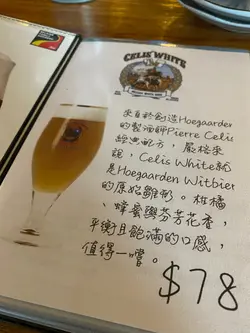 CELIS WHITE
來自於創造Hoegaarden
的製酒師Pierre Celis
經典配方，嚴格來
說，Celis White就
是Hoegaarden Witbier
的原始雛形。柑橘
、蜂蜜與芬芳花香，
平衡且飽滿的口感，
值得一嚐。
$78